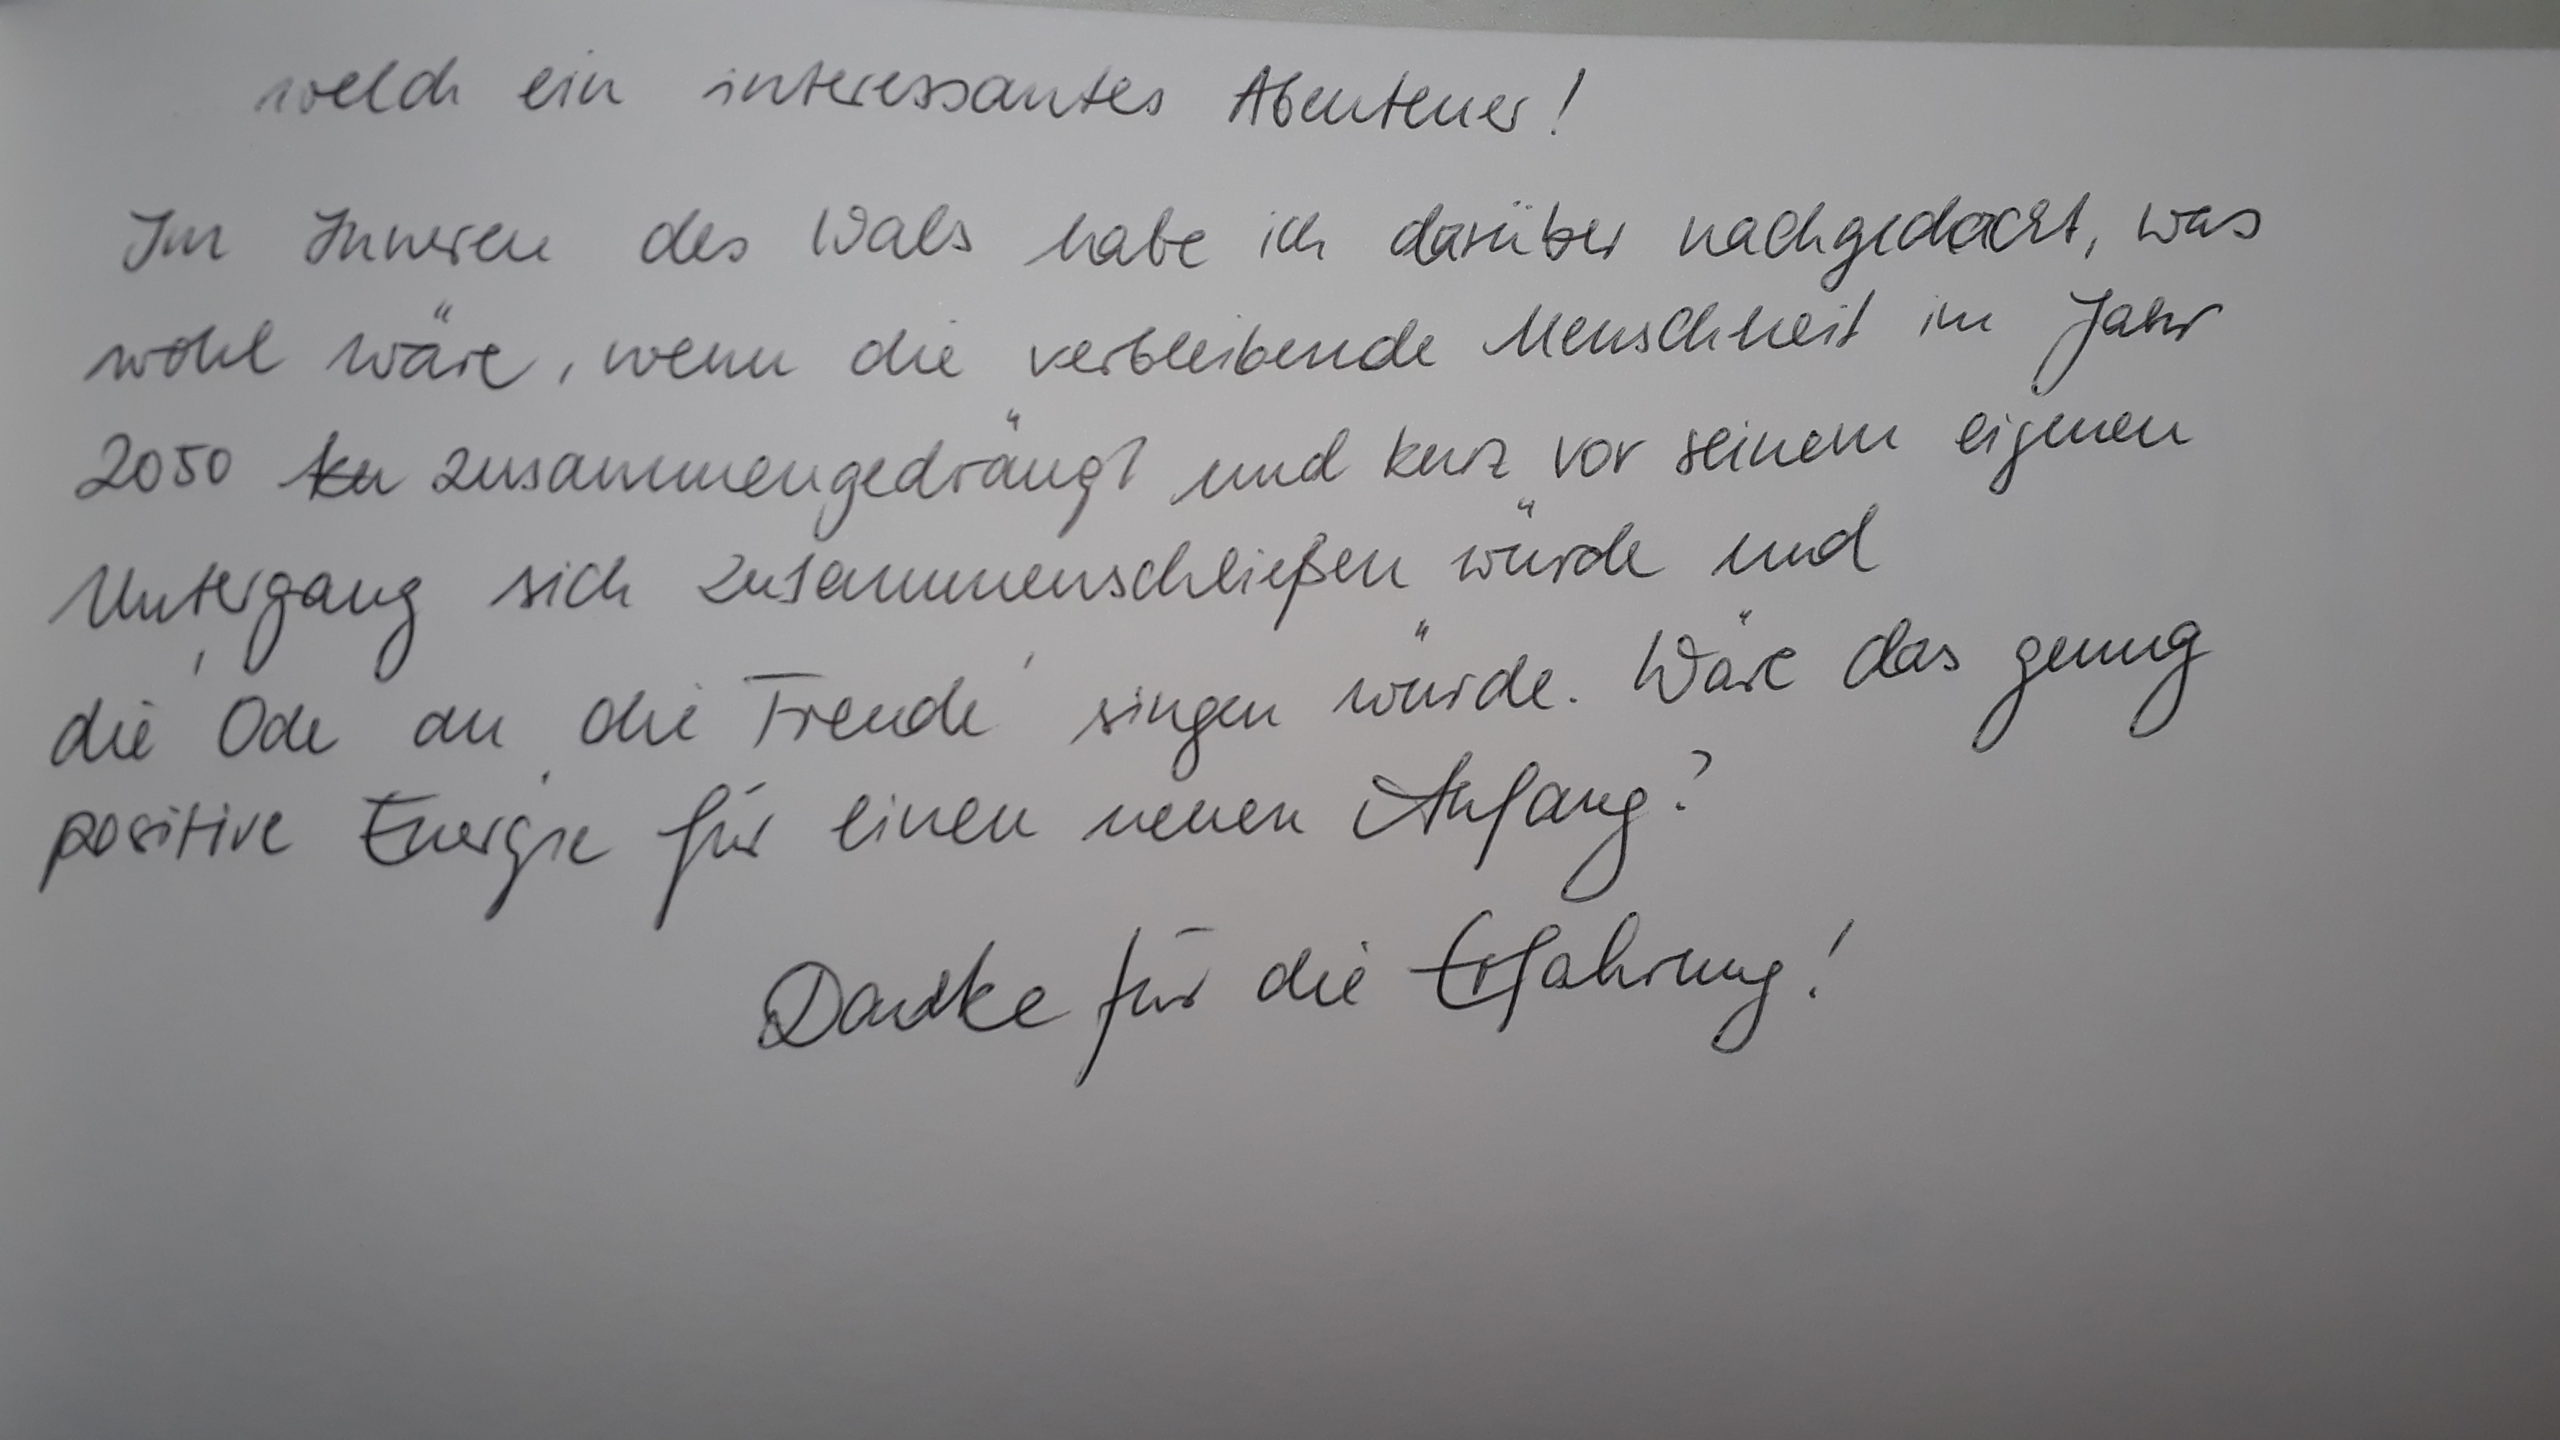 welch ein interessantes Abenteuer!
Im Inneren des Wals habe ich darüber nachgedacht, was
wohl wäre, wenn die verbleibende Menschheit im Jahr
2050 zusammengedrängt und kurz vor seinem eigenen
Untergang sich zusammenschließen würde und
die 'Ode an die Freude' singen würde. Wäre das genug
positive Energie für einen neuen Anfang?
Danke für die Erfahrung!